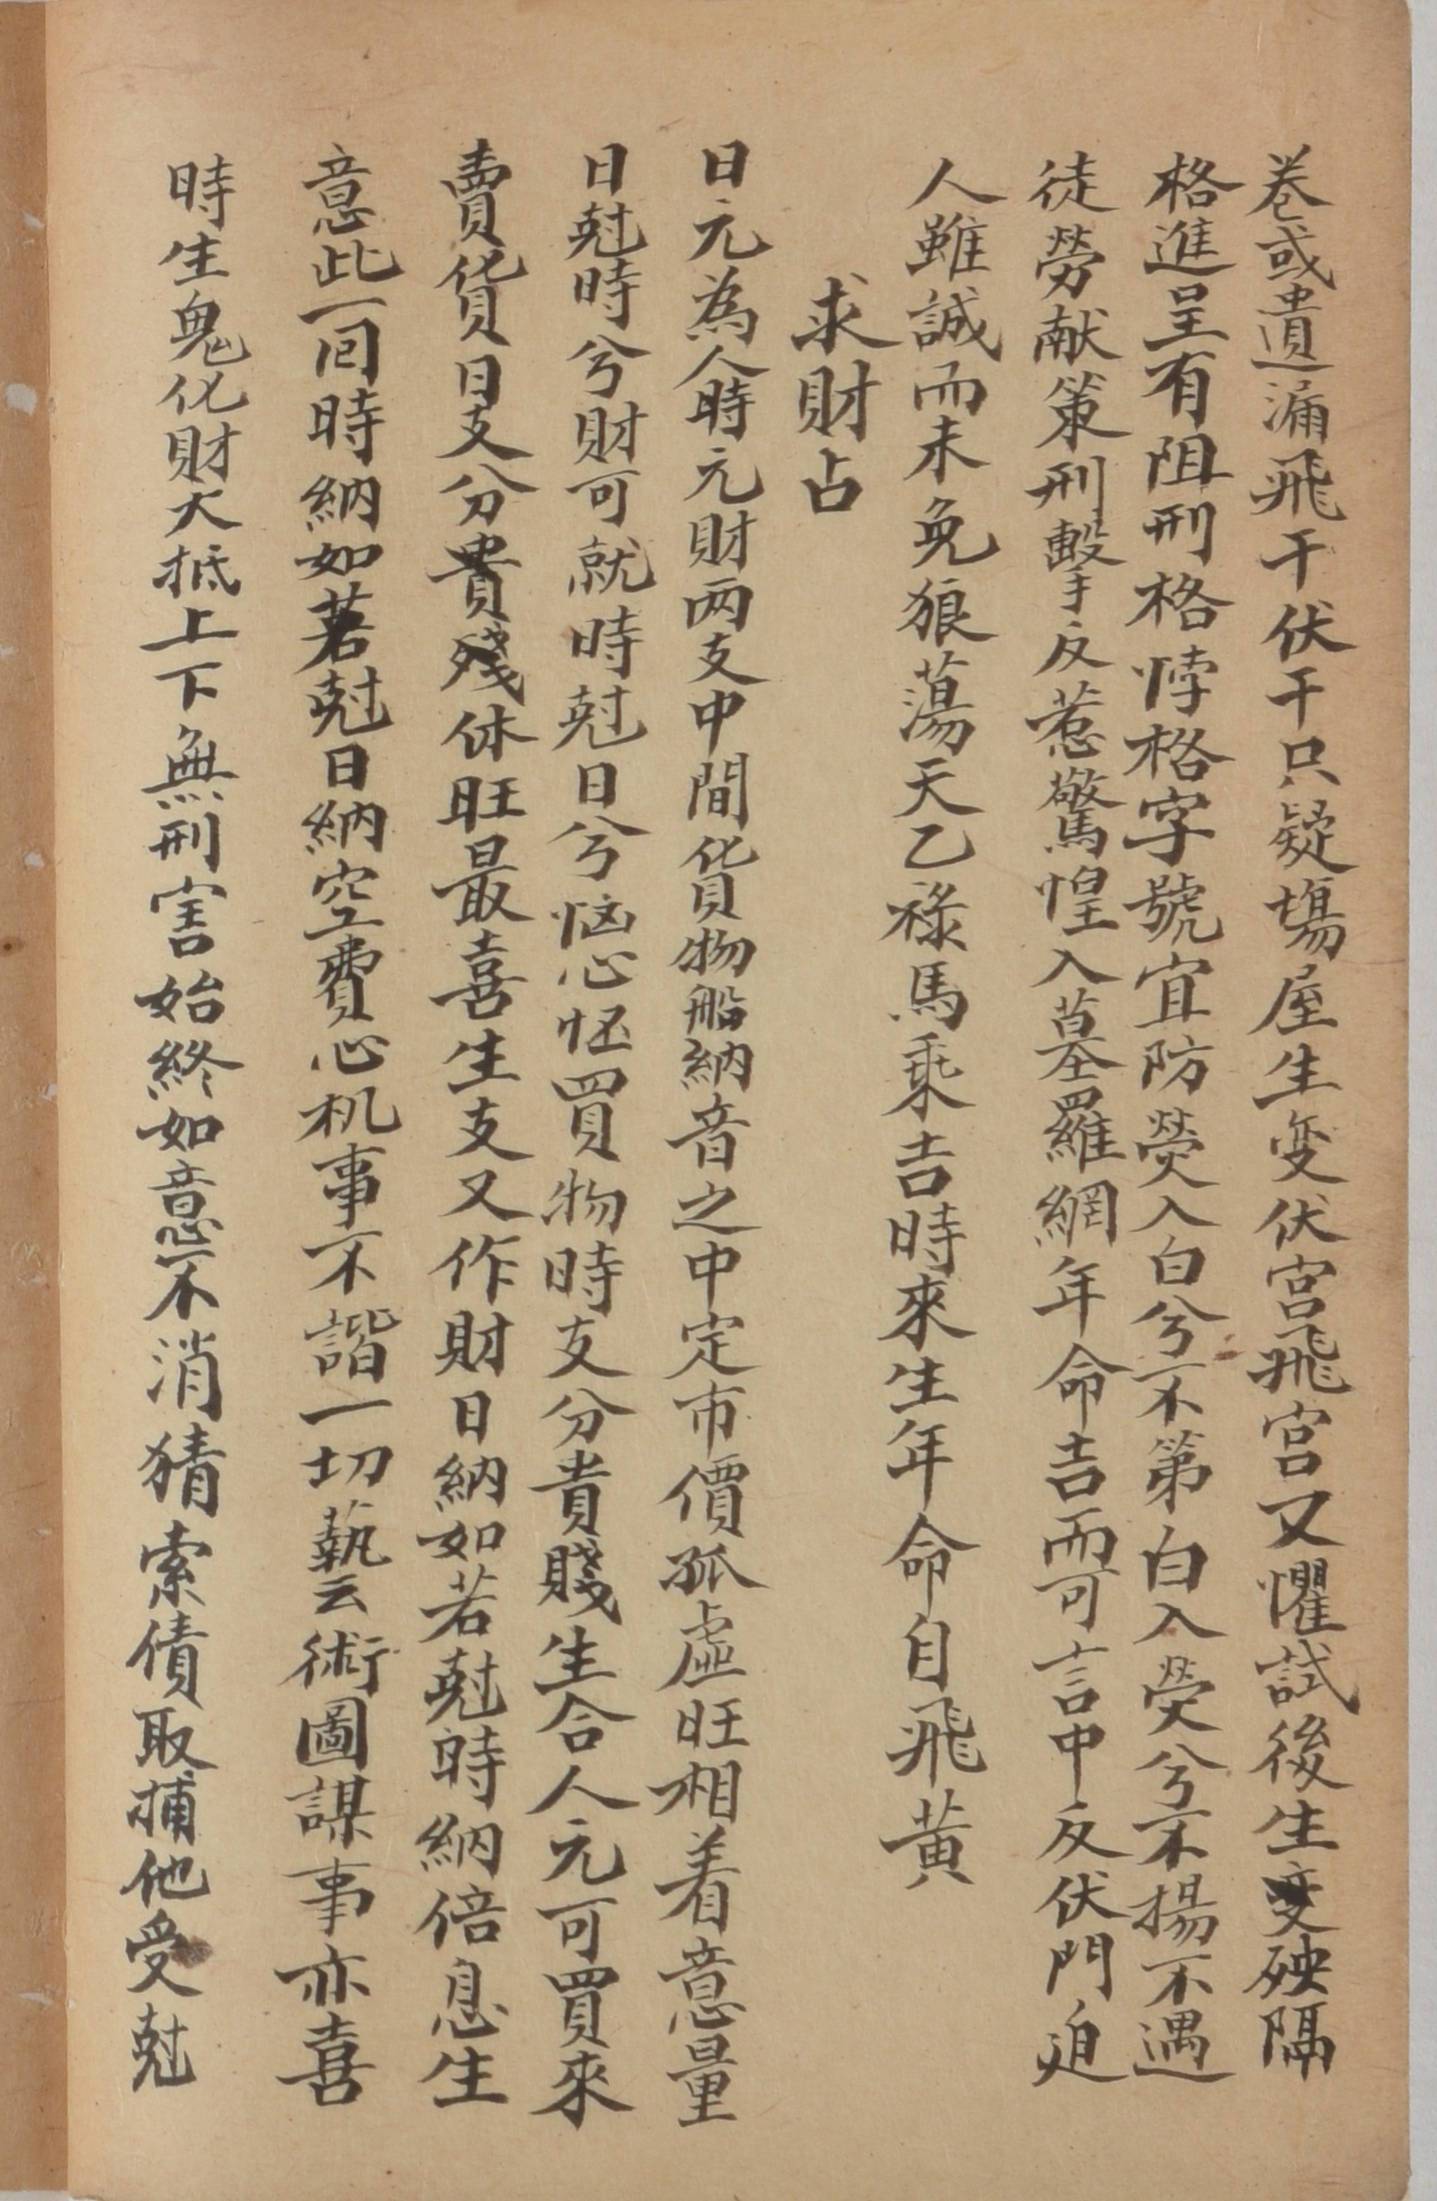 卷或遺漏飛干伏干只疑塲屋生变伏宮飛宮又懼試後生变殃隔
格進呈有阻刑格悖格字號宜防熒入白兮不第白入熒兮不揚不遇
徒勞献策刑擊反惹驚惶入墓羅網年命吉而可言中反伏門迫
人雖誠而未免狼蕩天乙祿馬乘吉時來生年命自飛黃
求財占
日元為人時元財两支中間貨物船納音之中定市價孤虛旺相着意量
日尅時兮財可就時尅日兮恼心怪買物時支分貴賤生合人元可買來
賣貨日支分貴殘休旺最喜生支又作財日納如若尅時納倍息生
意此一囘時納如若尅日納空費心机事不諧一切藝術圖謀事亦喜
時生鬼化財大抵上下無刑害始終如意不消猜索債取捕他受尅